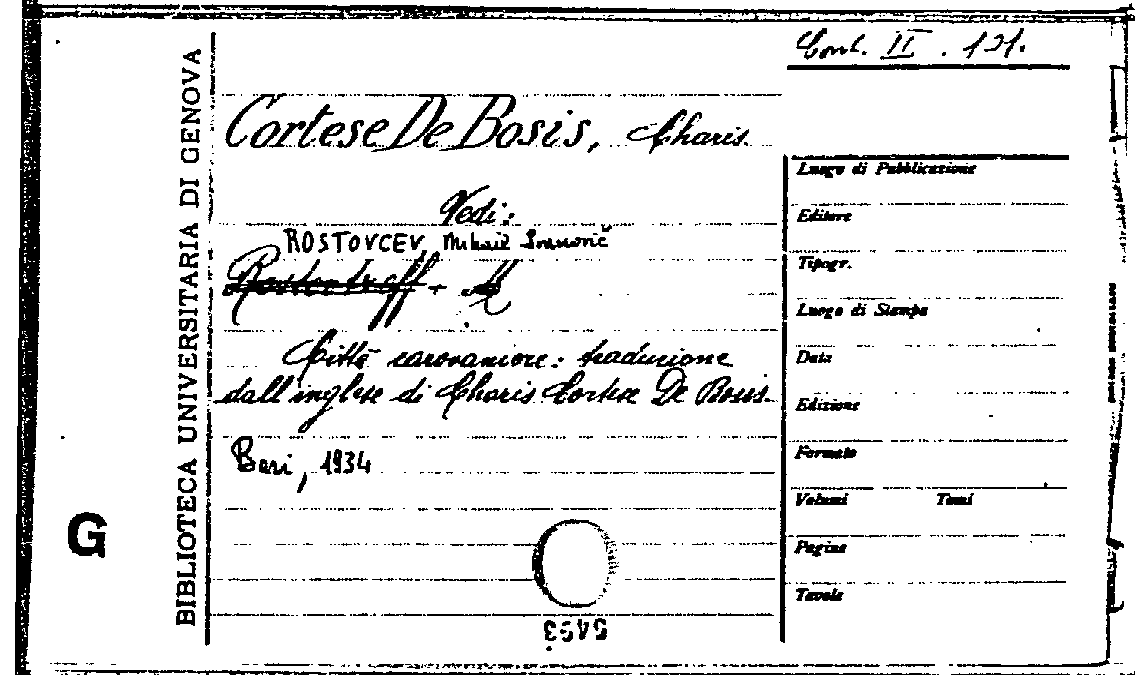 Cont. II. 121.
BIBLIOTECA UNIVERSITARIA DI GENOVA
Cortese De Bosis, Charis.
Vedi:
ROSTOVCEV, Mihail Ivanovič
Rostovtzeff M
Città carovaniere: traduzione
dall'inglese di Charis Cortese De Bosis.
Bari, 1934
Luogo di Pubblicazione
Editore
Tipogr.
Luogo di Stampa
Data
Edizione
Formato
Volumi Tomi
Pagine
Tavole
G
5493